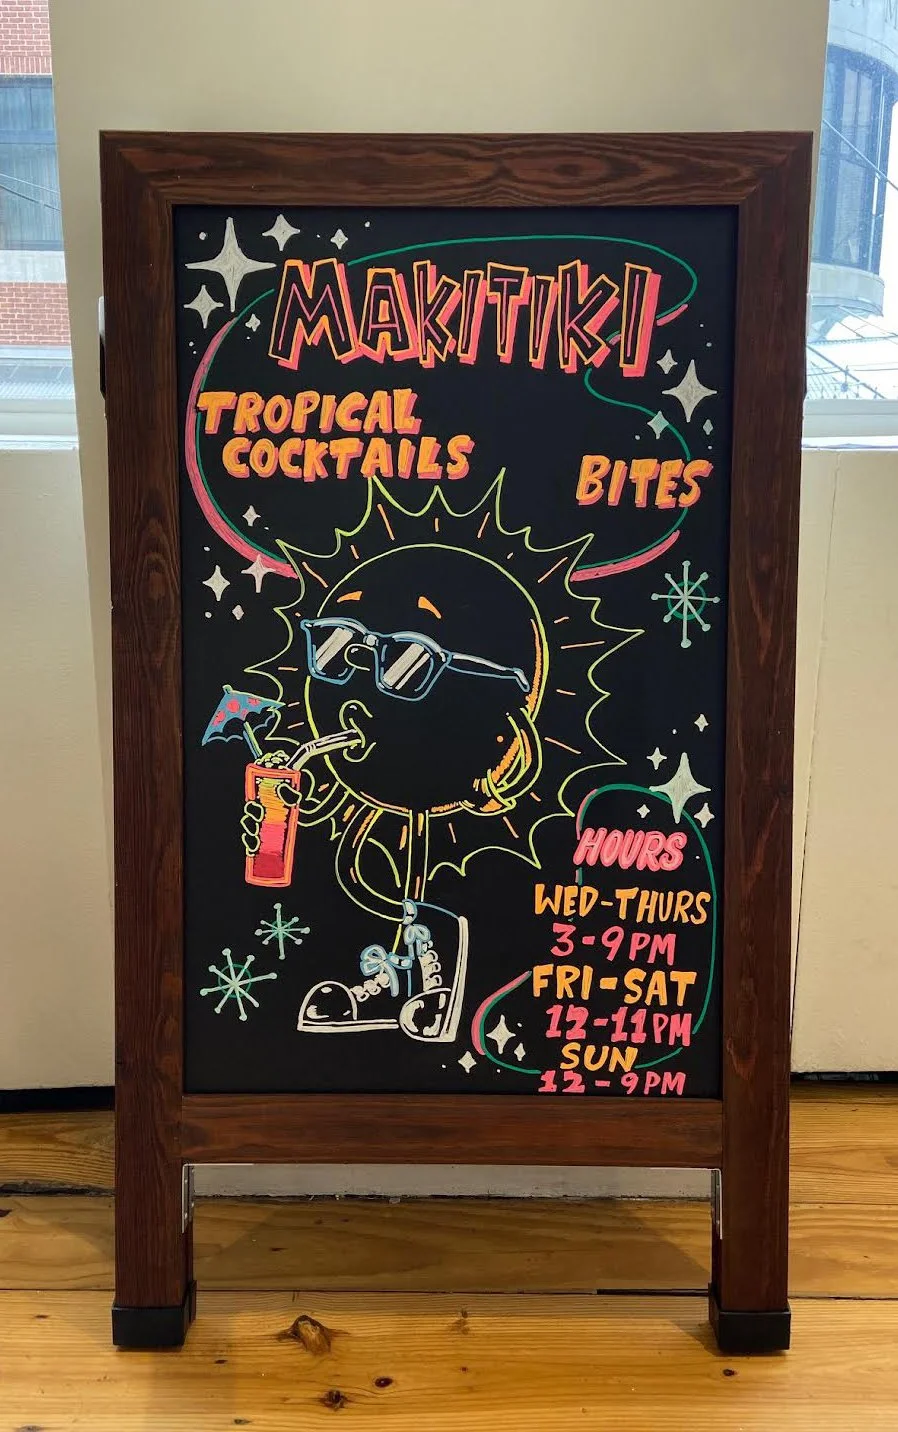 MAKITIKI
TROPICAL
COCKTAILS
BITES
HOURS
WED-THURS
3-9PM
FRI-SAT
12-11PM
SUN
12-9PM